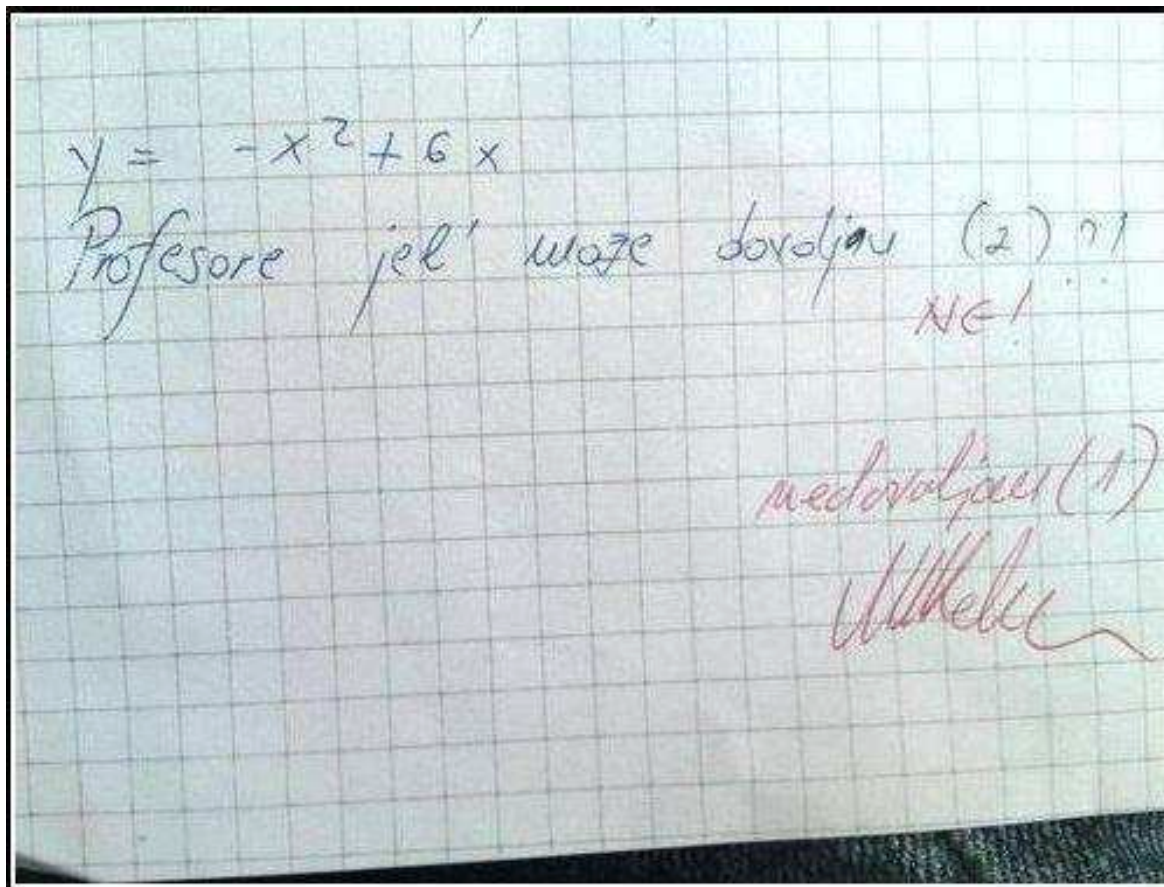 y = -x² + 6x
Profesore jel' može dovoljan (2)?!
NE!
nedovoljan (1)